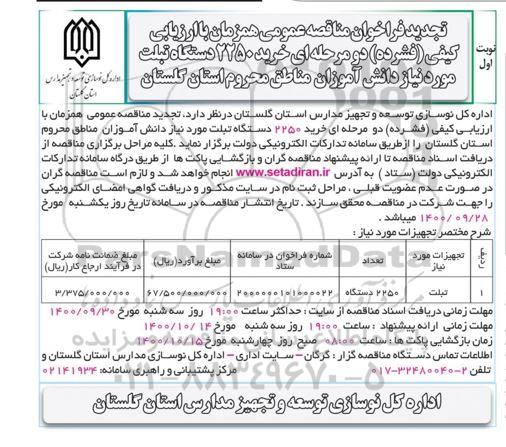 تجدید فراخوان مناقصه عمومی همزمان با ارزیابی
کیفی (فشرده) دو مرحله ای خرید ۲۲۵۰ دستگاه تبلت
مورد نیاز دانش آموزان مناطق محروم استان گلستان
نوبت
اول
اداره کل نوسازی توسعه و تجهیز مدارس
استان گلستان
اداره کل نوسازی توسعه و تجهیز مدارس استان گلستان درنظر دارد، تجدید مناقصه عمومی همزمان با
ارزیابی کیفی (فشرده) دو مرحله ای خرید ۲۲۵۰ دستگاه تبلت مورد نیاز دانش آموزان مناطق محروم
استان گلستان را ازطریق سامانه تدارکات الکترونیکی دولت برگزار نماید .کلیه مراحل برگزاری مناقصه از
دریافت اسناد مناقصه تا ارائه پیشنهاد مناقصه گران و بازگشایی پاکت ها از طریق درگاه سامانه تدارکات
الکترونیکی دولت (ستاد ) به آدرس www.setadiran.ir انجام خواهد شد و لازم است مناقصه گران
در صورت عدم عضویت قبلی ، مراحل ثبت نام در سایت مذکور و دریافت گواهی امضای الکترونیکی
را جهت شرکت در مناقصه محقق سازند . تاریخ انتشار مناقصه در سامانه تاریخ روز یکشنبه مورخ
۱۴۰۰/ ۰۹/۲۸ میباشد .
شرح مختصر تجهیزات مورد نیاز :
ردیف | تجهیزات مورد نیاز | تعداد | شماره فراخوان در سامانه ستاد | مبلغ برآورد(ریال) | مبلغ ضمانت نامه شرکت در فرآیند ارجاع کار(ریال)
۱ | تبلت | ۲۲۵۰ دستگاه | ۲۰۰۰۰۰۰۱۰۱۰۰۰۰۲۲ | ۶۷/۵۰۰/۰۰۰/۰۰۰ | ۳/۳۷۵/۰۰۰/۰۰۰
مهلت زمانی دریافت اسناد مناقصه از سایت : حداکثر ساعت ۱۹:۰۰ روز سه شنبه مورخ ۱۴۰۰/۰۹/۳۰
مهلت زمانی ارائه پیشنهاد : ساعت ۱۹:۰۰ روز سه شنبه مورخ ۱۴۰۰/۱۰/۱۴
زمان بازگشایی پاکت ها : ساعت ۰۸:۰۰ صبح روز چهارشنبه مورخ ۱۴۰۰/۱۰/۱۵
اطلاعات تماس دستگاه مناقصه گزار : گرگان – سایت اداری – اداره کل نوسازی مدارس استان گلستان و
تلفن ۲-۰۱۷-۳۲۴۸۰۰۴۰ مرکز پشتیبانی و راهبری سامانه: ۰۲۱۴۱۹۳۴
اداره کل نوسازی توسعه و تجهیز مدارس استان گلستان
ParsNamadData
۰۲۱-۸۸۳۴۹۶۷۰-۵